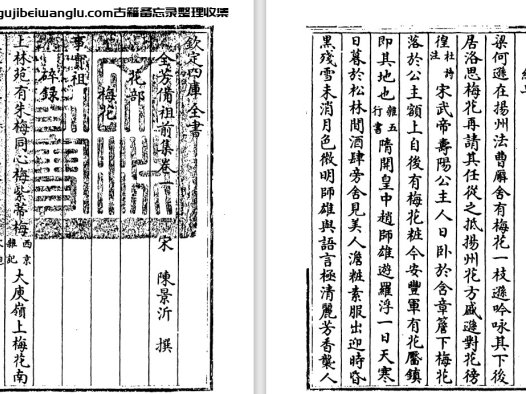 gujibeiwanglu.com古籍备忘录整理收集
欽定四庫全書
全芳備祖前集卷一
宋 陳景沂 撰
花部
梅花
事實祖
碎錄
上林苑有朱梅同心梅紫蒂梅西京雜記大庾嶺上梅花南
梁何遜在揚州法曹廨舍有梅花一枝遜吟咏其下後
居洛思梅花再請其任從之抵揚州花方盛遜對花徬
徨杜詩注宋武帝壽陽公主人日卧於含章簷下梅花
落於公主額上自後有梅花粧今安豐軍有花靨鎮
即其地也雜五行書隋開皇中趙師雄遊羅浮一日天寒
日暮於松林間酒肆旁舍見美人澹粧素服出迎時昏
黑殘雪未消月色微明師雄與語言極清麗芳香襲人